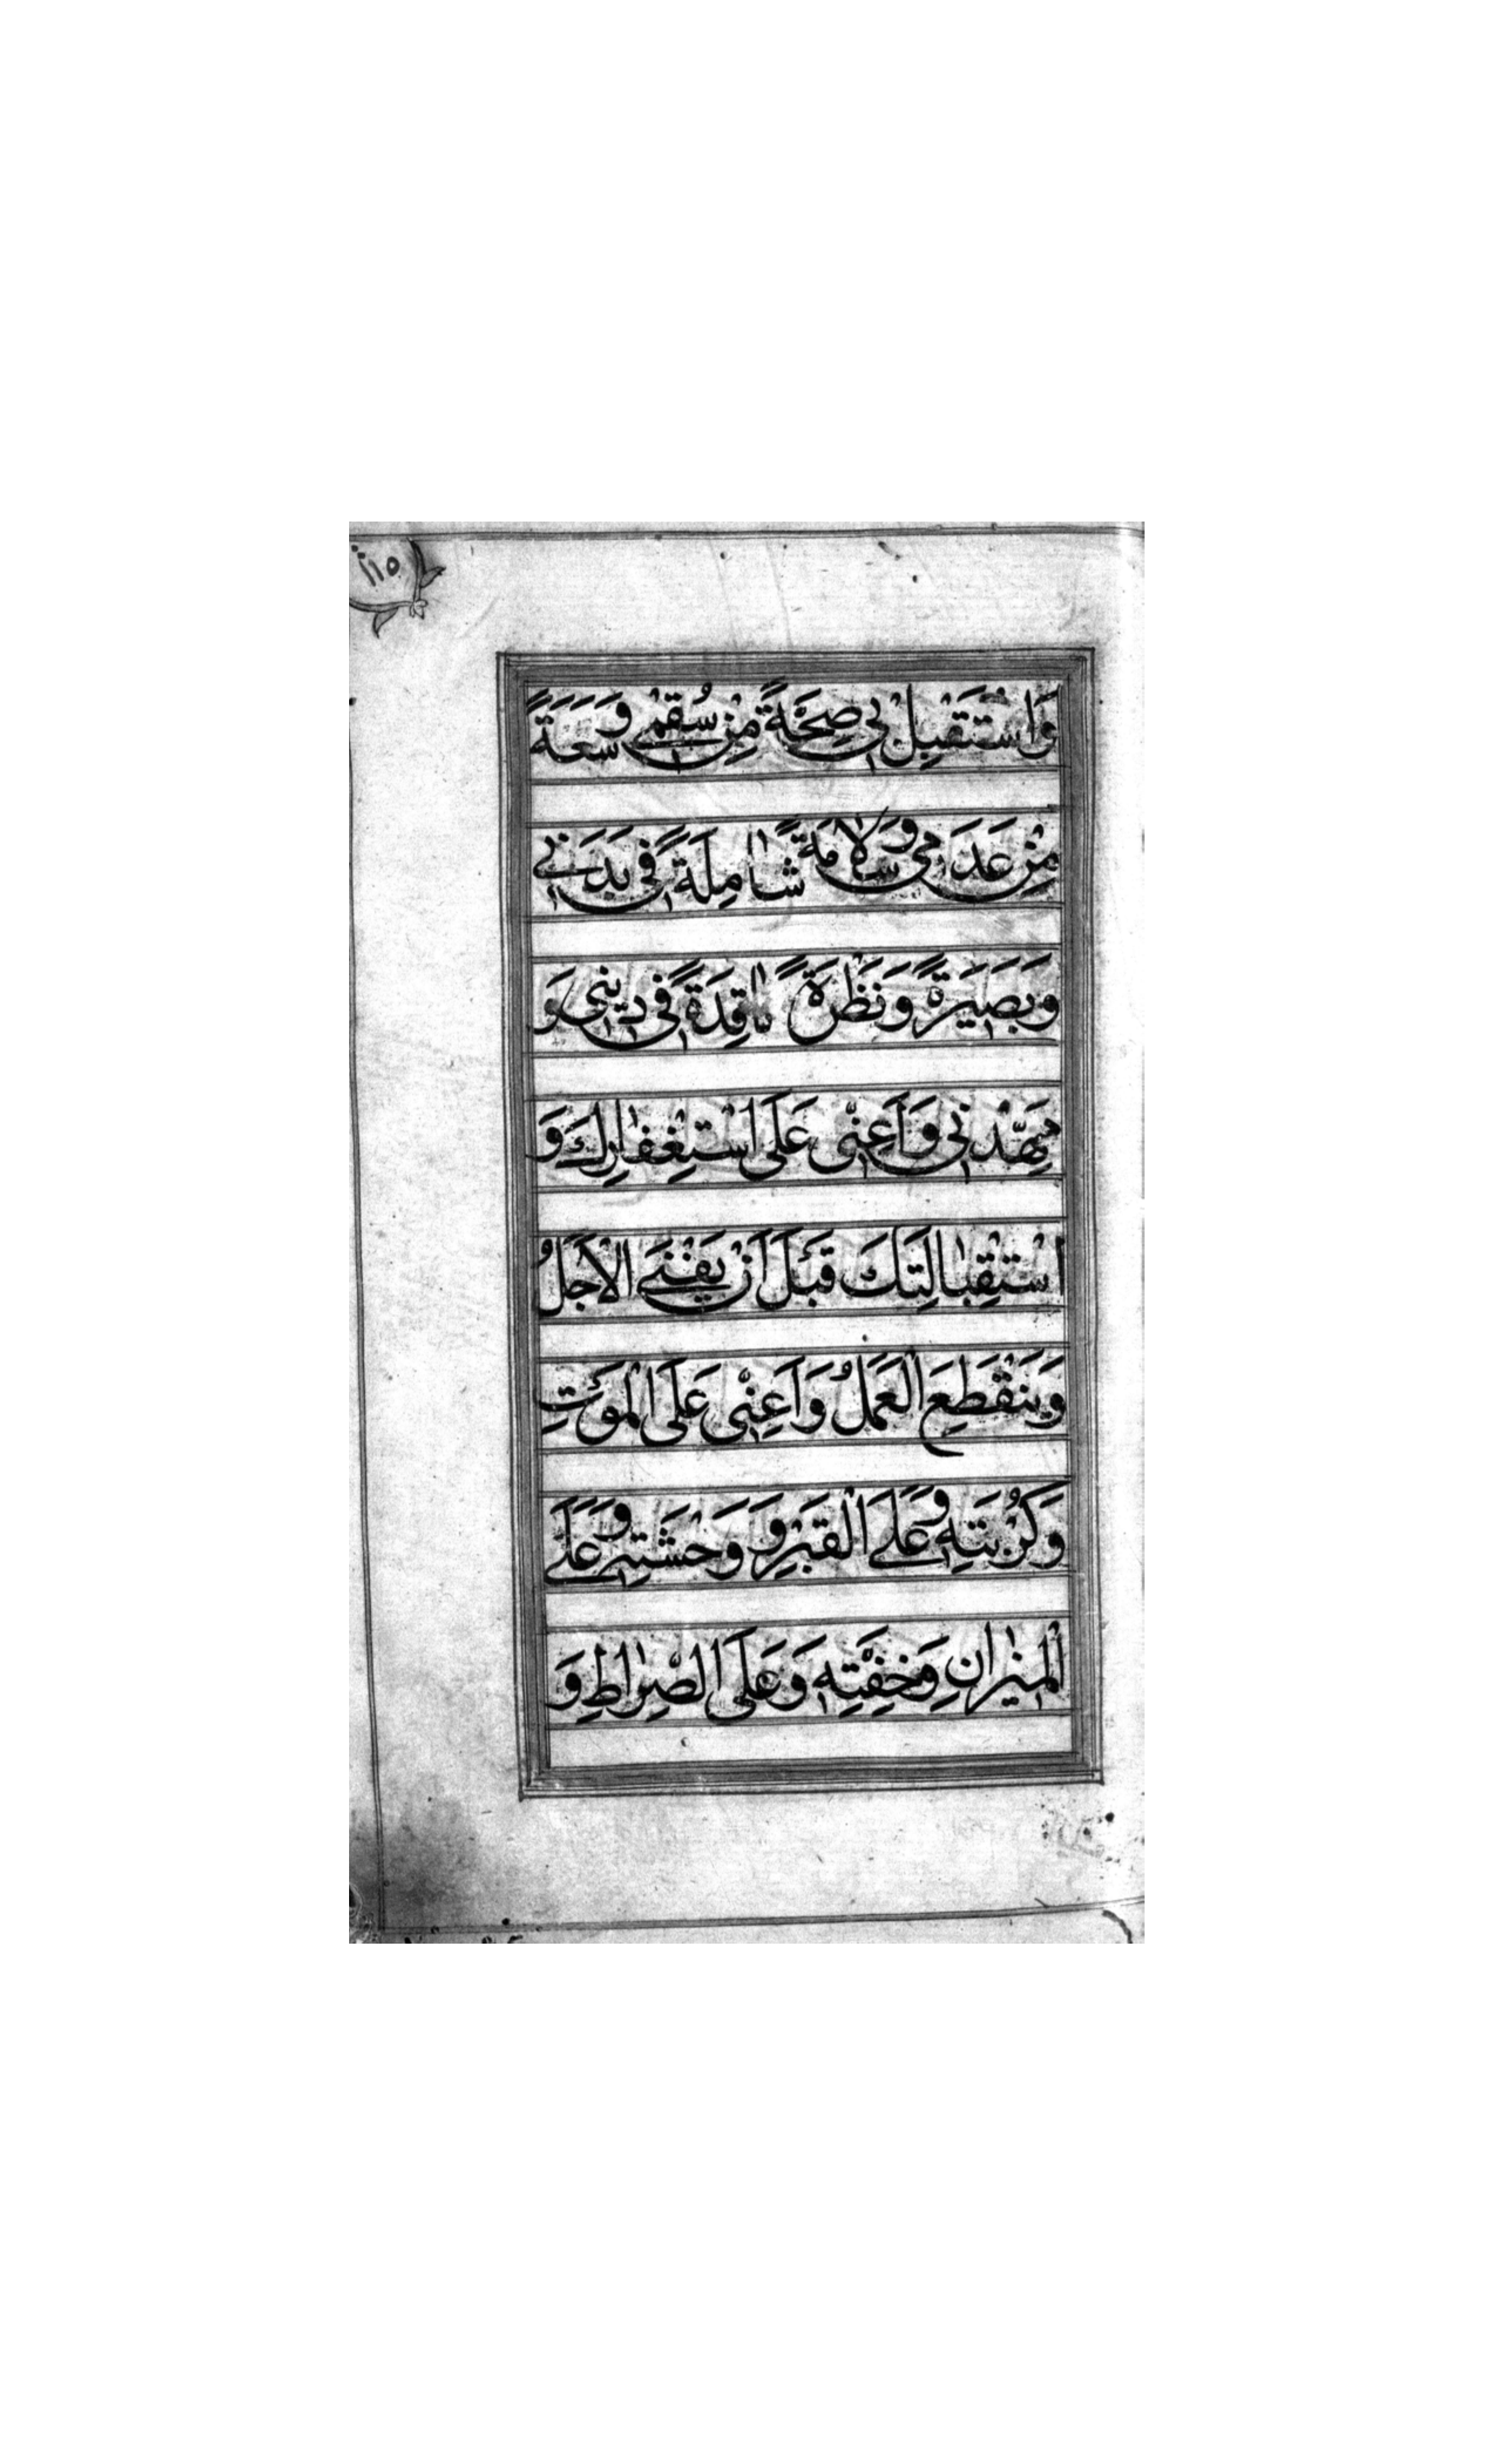 ١١٥
وَاسْتَقْبِلْ بي صِحَّةً مِنْ سُقْمي وَسَعَةً
مِنْ عَدَمي وَسَلامَةً شامِلَةً في بَدَني
وَبَصيرَةً وَنَظْرَةً نافِذَةً في ديني وَ
مَهِّدْني وَاَعِنّي عَلَى اسْتِغْفارِكَ وَ
اسْتِقْبالَتِكَ قَبْلَ اَنْ يَفْنَى الْاَجَلُ
وَيَنْقَطِعَ الْعَمَلُ وَاَعِنّي عَلَى الْمَوْتِ
وَكُرْبَتِهِ وَعَلَى الْقَبْرِ وَ وَحْشَتِهِ وَعَلَى
الْميزانِ وَخِفَّتِهِ وَعَلَى الصِّراطِ وَ